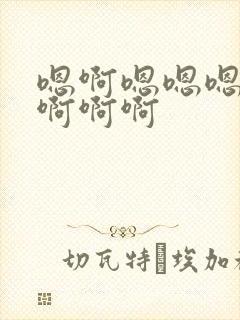 嗯啊嗯嗯嗯
啊啊啊
切瓦特 埃加